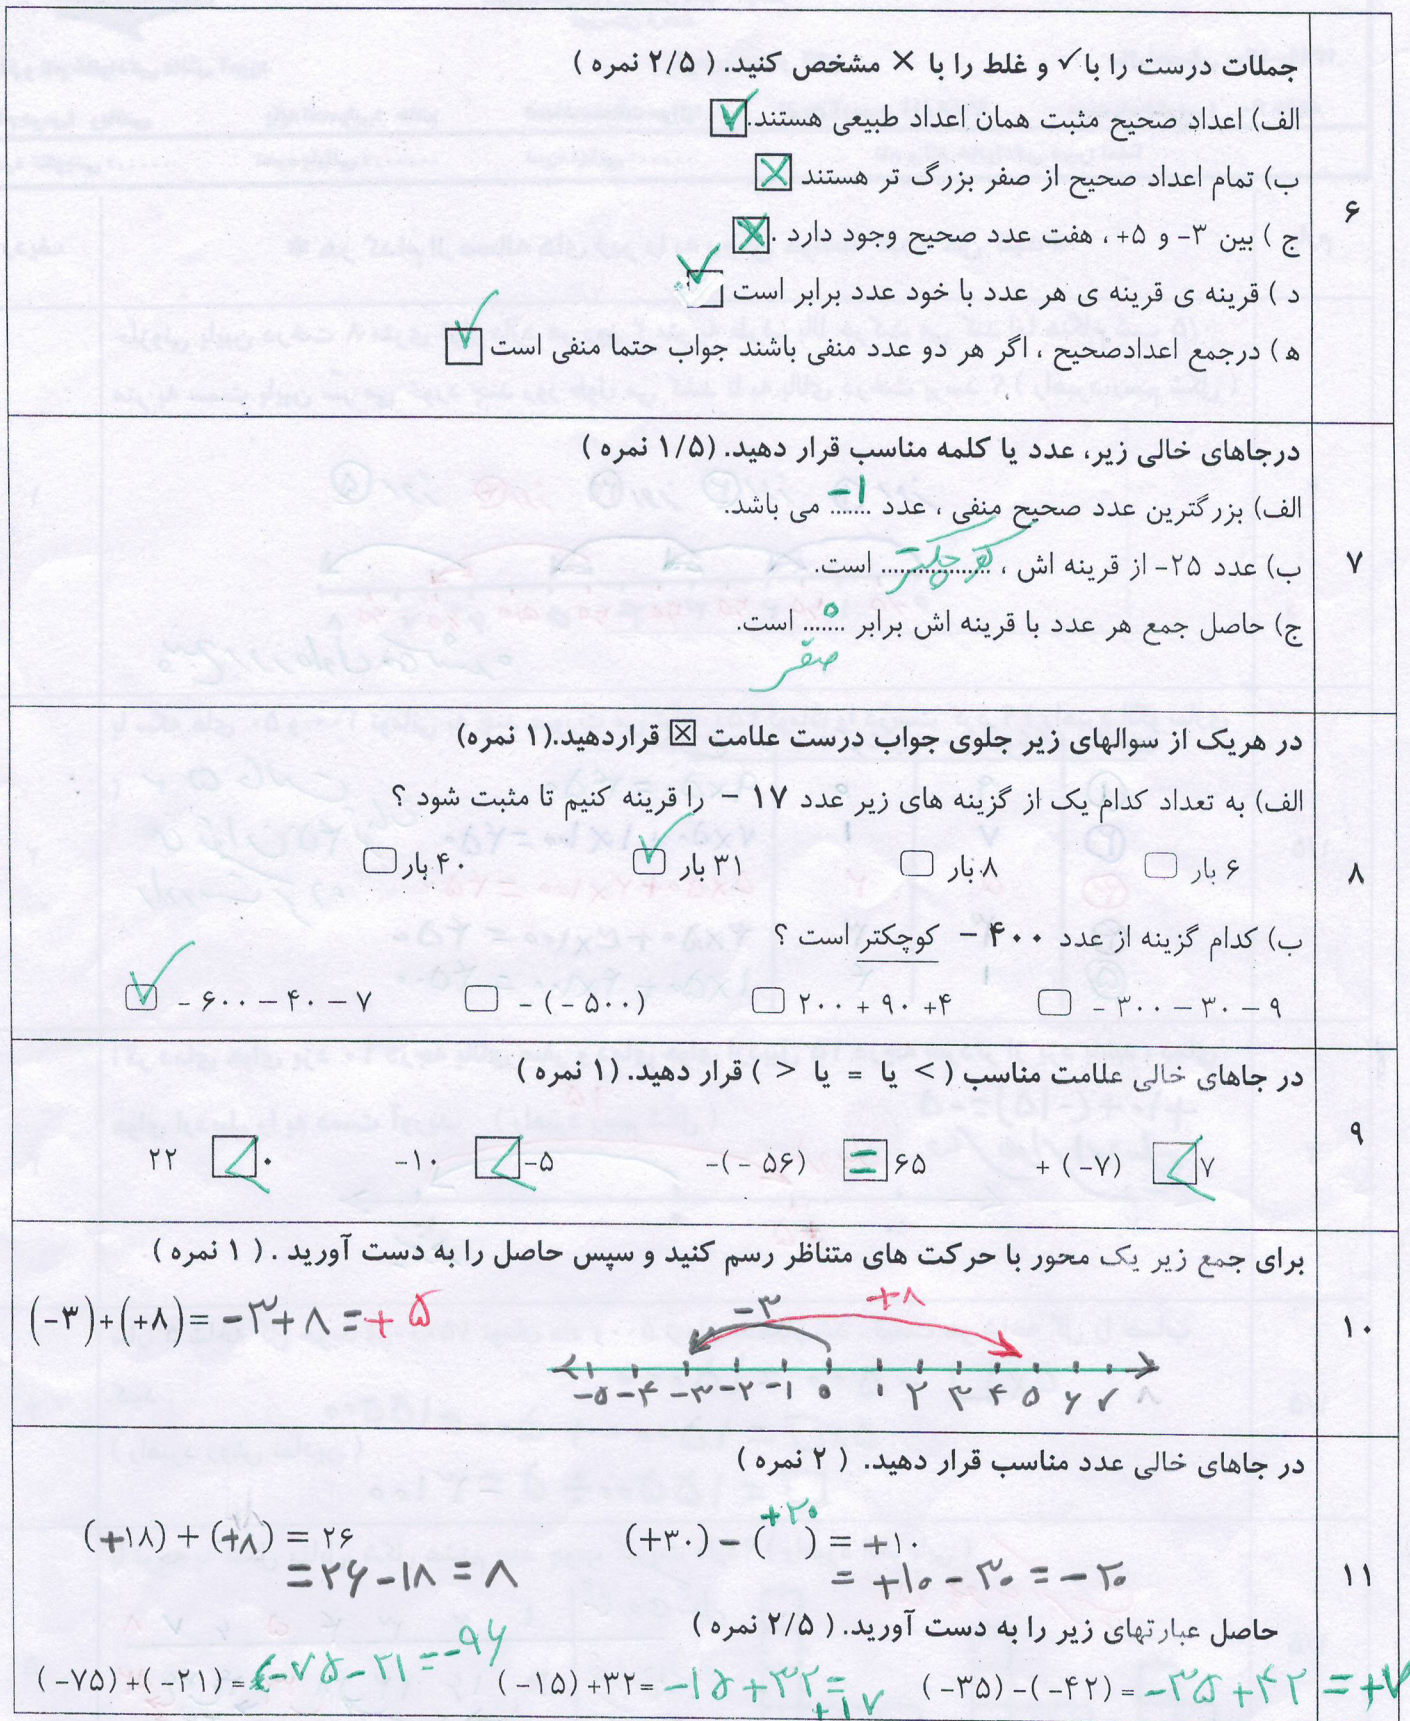 ۶
جملات درست را با ✓ و غلط را با × مشخص کنید. ( ۲/۵ نمره )
الف) اعداد صحیح مثبت همان اعداد طبیعی هستند. ✓
ب) تمام اعداد صحیح از صفر بزرگ تر هستند ×
ج ) بین ۳- و ۵+ ، هفت عدد صحیح وجود دارد . ×
د ) قرینه ی قرینه ی هر عدد با خود عدد برابر است ✓
ه ) درجمع اعدادصحیح ، اگر هر دو عدد منفی باشند جواب حتما منفی است ✓
۷
درجاهای خالی زیر، عدد یا کلمه مناسب قرار دهید. (۱/۵ نمره )
الف) بزرگترین عدد صحیح منفی ، عدد ...−۱... می باشد.
ب) عدد ۲۵- از قرینه اش ، ...کوچکتر... است.
ج) حاصل جمع هر عدد با قرینه اش برابر ...۰... است.
صفر
۸
در هریک از سوالهای زیر جلوی جواب درست علامت ☒ قراردهید.(۱ نمره)
الف) به تعداد کدام یک از گزینه های زیر عدد ۱۷ − را قرینه کنیم تا مثبت شود ؟
۶ بار □ ۸ بار □ ۳۱ بار ✓ ۴۰ بار □
ب) کدام گزینه از عدد ۴۰۰ − کوچکتر است ؟
− ۳۰۰ − ۳۰ − ۹ □ ۲۰۰ + ۹۰ +۴ □ − ( − ۵۰۰ ) □ − ۶۰۰ − ۴۰ − ۷ ✓
۹
در جاهای خالی علامت مناسب ( > یا = یا < ) قرار دهید. (۱ نمره )
+ ( −۷) < ۷ −( − ۵۶) = ۶۵ −۱۰ < −۵ ۲۲ < ۰
۱۰
برای جمع زیر یک محور با حرکت های متناظر رسم کنید و سپس حاصل را به دست آورید . ( ۱ نمره )
(−۳)+(+۸)= −۳+۸ = +۵
−۳ +۸
−۵ −۴ −۳ −۲ −۱ ۰ ۱ ۲ ۳ ۴ ۵ ۶ ۷
۱۱
در جاهای خالی عدد مناسب قرار دهید. ( ۲ نمره )
(+۳۰) − (+۲۰) = +۱۰
= +۱۰ − ۳۰ = −۲۰
(+۱۸) + (+۸) = ۲۶
= ۲۶ − ۱۸ = ۸
حاصل عبارتهای زیر را به دست آورید. ( ۲/۵ نمره )
( −۳۵) −( −۴۲) = −۳۵ + ۴۲ = +۷
( −۱۵) +۳۲= −۱۵ + ۳۲ = +۱۷
( −۷۵) +( −۲۱) = −۷۵ − ۲۱ = −۹۶